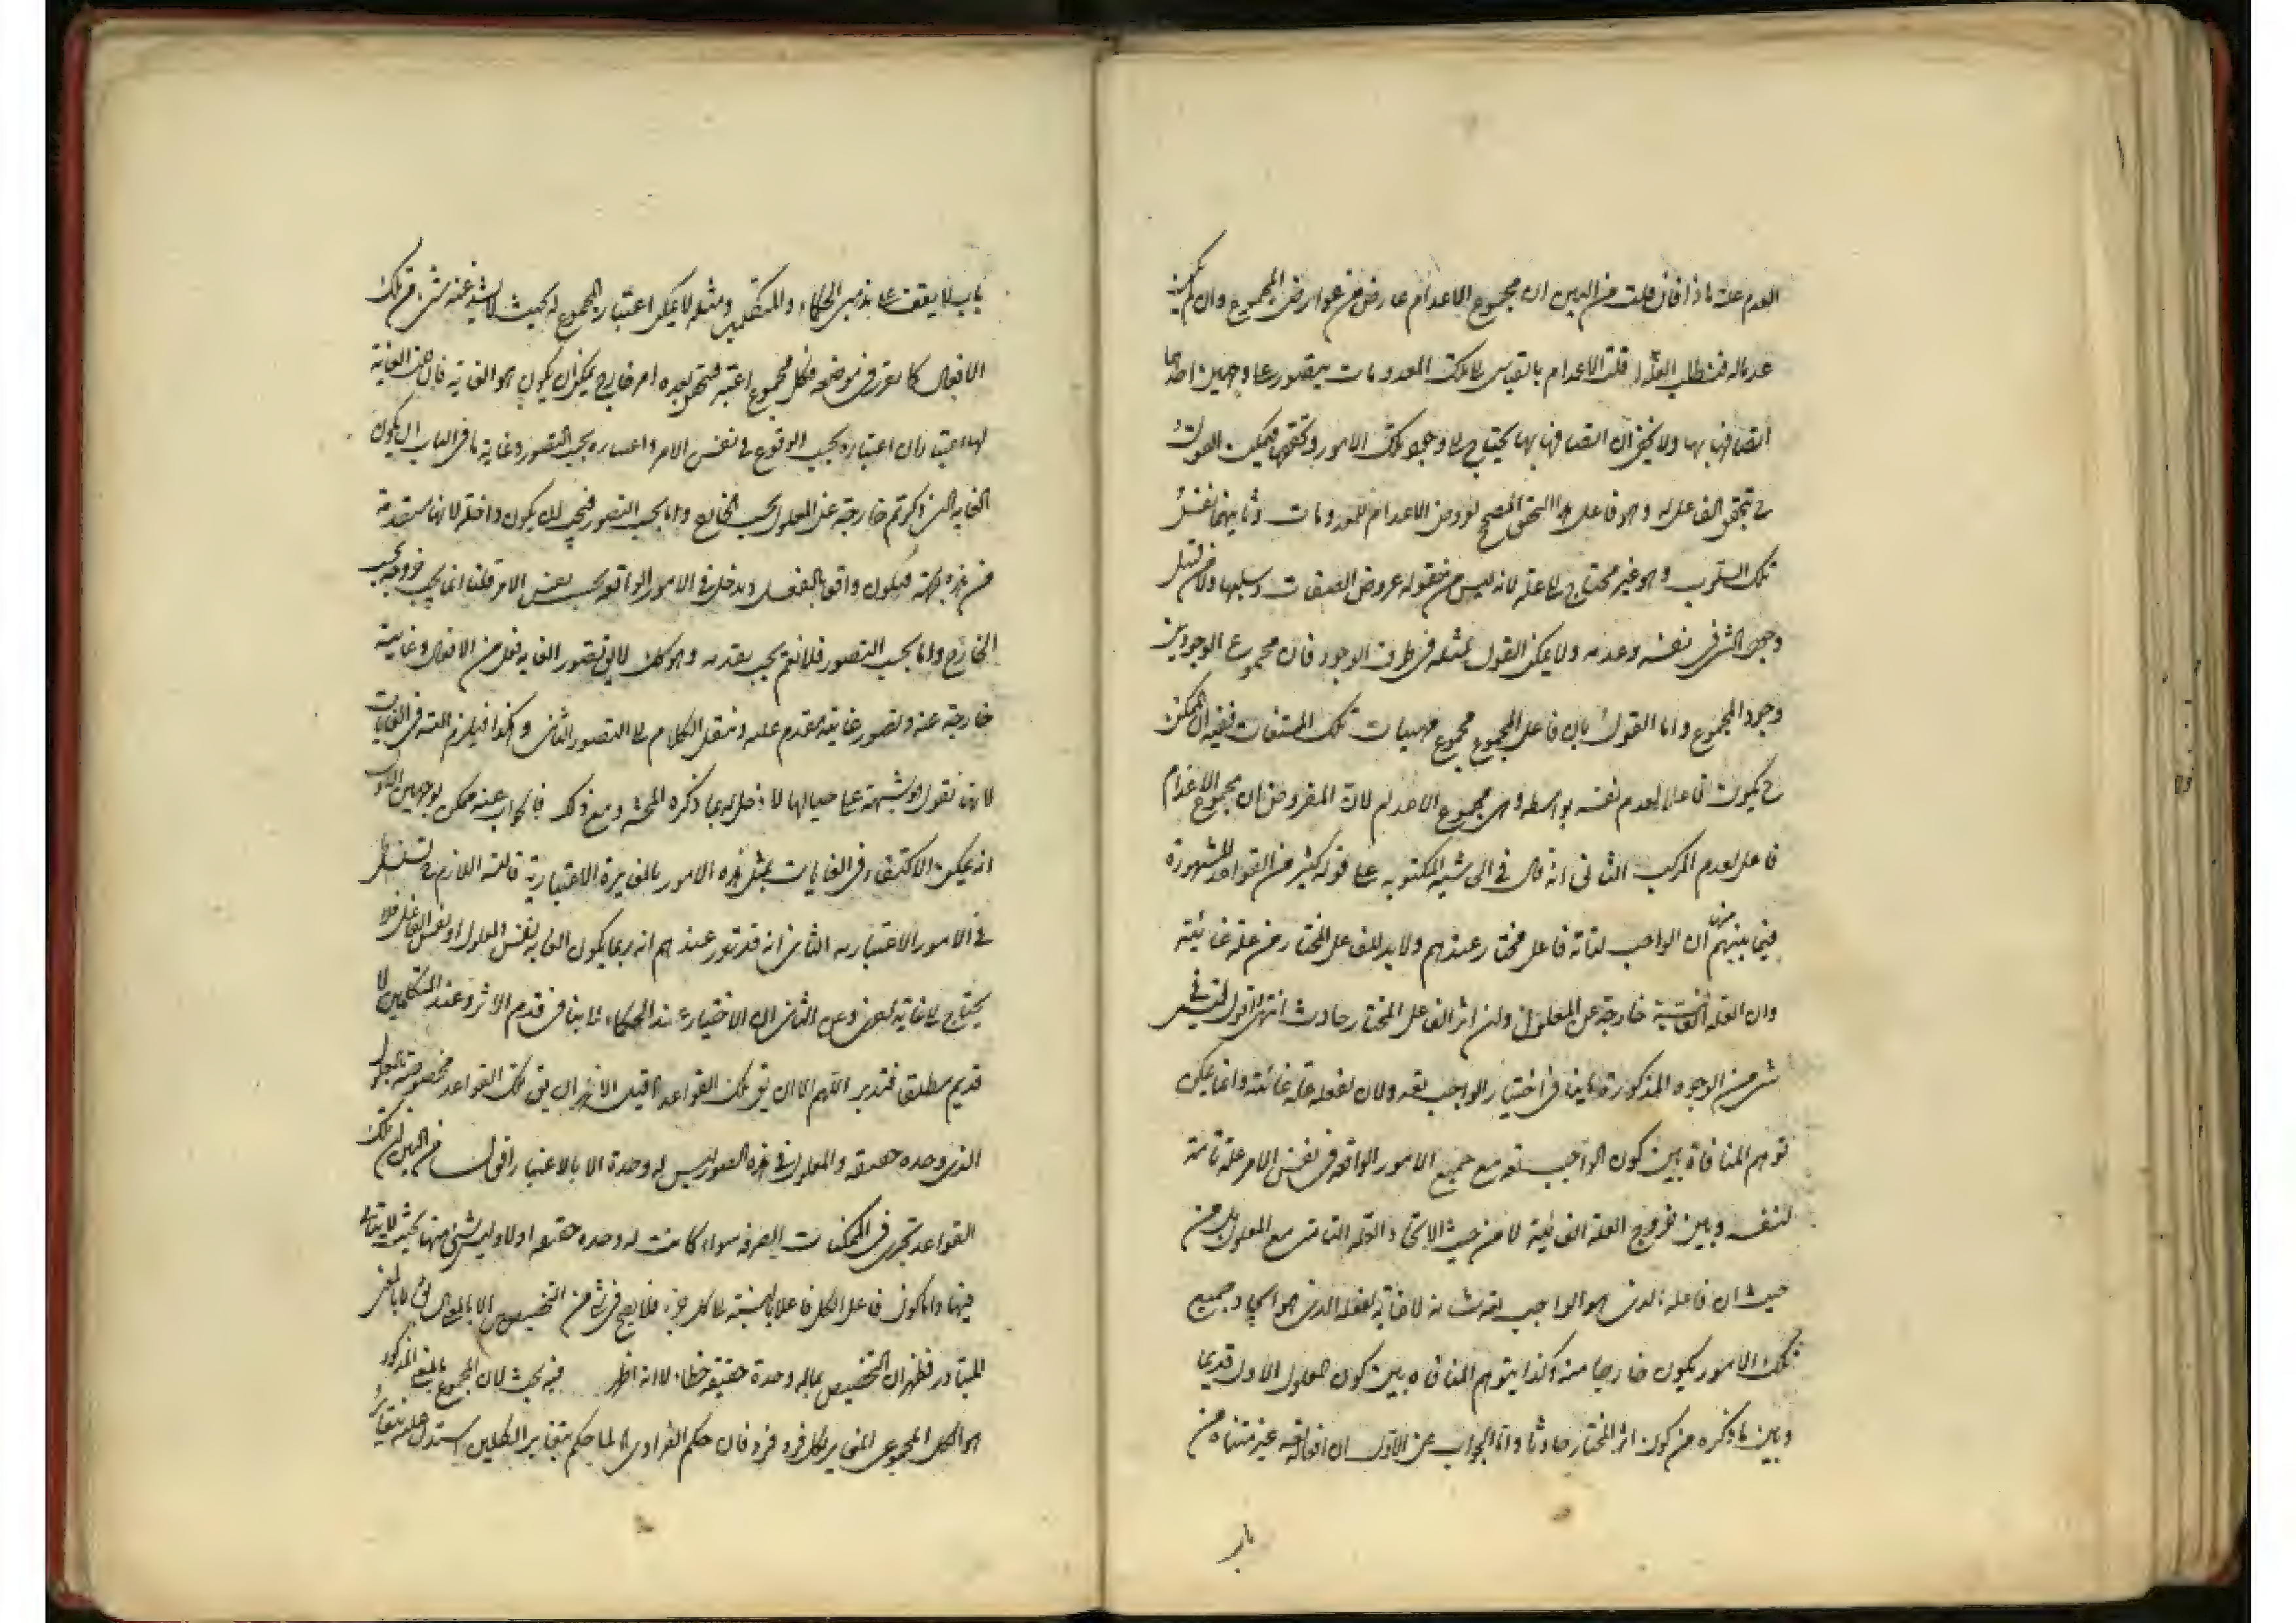 العدم علة ماذا فان قلت من البين ان مجموع الاعدام عارض من عوارض المجموع وان لم يكن
عدما له فنطلب العلة قلت الاعدام بالقياس الى تلك المعدومات يتصور على وجهين احدهما
اتصافها بها ولا يخفى ان اتصافها بها يحتاج الى وجود تلك الامور وتحققها فيمكن القول
ح بتحقق الفاعل له وهو فاعل هذا التحقق المصحح لعروض الاعدام للمعدومات وثانيهما نفس
تلك السلوب وهو غير محتاج الى علة لانه ليس من مقولة عروض الصفات وسلبها ولا من قبيل
وجود الشئ فى نفسه وعدمه ولا يمكن القول بمثله فى طرف الوجود فان مجموع الوجودين
وجود المجموع واما القول بان فاعل المجموع مجموع مهيات تلك الممتنعات ففيه ان الممكن
ح يكون فاعلا لعدم نفسه بواسطة وهى مجموع الاعدام لان المفروض ان مجموع الاعدام
فاعل لعدم المركب الثانى انه قال فى الحاشية المكتوبة على قوله كثير من القواعد المشهورة
فيما بينهم منها ان الواجب لذاته فاعل مختار عندهم ولا بد للفاعل المختار من علة غائية
وان العلة الغائية خارجة عن المعلول وان اثر الفاعل المختار حادث انتهى اقول ليس فى
شئ من الوجوه المذكورة ما ينافى اختيار الواجب تعه ولان لفعله علة غائية وانما يمكن
توهم المنافاة بين كون الواجب تعه مع جميع الامور الواقعة فى نفس الامر علة تامة
لنفسه وبين خروج العلة الغائية لا من حيث الاتحاد العلة التامة مع المعلول بل من
حيث ان فاعله الذى هو الواجب تعه شانه لا غاية لفعله الذى هو ايجاد جميع
تلك الامور يكون خارجا منه وكذا يتوهم المنافاة بين كون المعلول الاول قديما
وبين ما ذكره من كون اثر المختار حادثا واما الجواب عن الاول ان افعاله تعه غير متناه من
باب
باب لا يقف على مذهبى الحكماء والمتكلمين ومثله لا يمكن اعتبار المجموع له بحيث لا يشذ عنه شئ من تلك
الافعال كما تقرر فى موضعه فكل مجموع اعتبر فيتحقق بعده امر خارج يمكن ان يكون هو الغاية فان هذه الغاية
لها اعتباران اعتباره بحسب الوقوع فى نفس الامر واعتباره بحسب التصور وغاية ما فى الباب ان يكون
الغاية التى ذكرتم خارجة عن المعلول بحسب الخارج واما بحسب التصور فيجب ان يكون داخلة لانها متقدمة
من هذه الجهة فيكون واقعا بالفعل ويدخل فى الامور الواقعة بحسب نفس الامر قلنا انما يجب خروجه بحسب
الخارج واما بحسب التصور فلا نعم يجب تقدمه وهو كك لا يق تصور الغاية فعل من الافعال وغايته
خارجة عنه وتصور غايته مقدم عليه وننقل الكلام الى التصور الثانى وهكذا فيلزم التسه فى الغايات
لانا نقول هو شبهة على حيالها لا دخل لها بما ذكره المحشى ومع ذلك فالجواب عنه ممكن بوجهين الاول
انه يمكن الاكتفاء فى الغايات بمثل هذه الامور بالمغايرة الاعتبارية فالتسه اللازم ح تسلسل
فى الامور الاعتبارية الثانى انه قد تقرر عندهم انه ربما يكون الغاية نفس المعلول او نفس الفاعل فلا
يحتاج الى غاية اخرى وعن الثانى ان الاختيار عند الحكماء لا ينافى قدم الاثر وعند المتكلمين لا
قديم مطلقا فتدبر اللهم الا ان يق تلك القواعد اقول الاظهر ان يق تلك القواعد مخصوصة بالمعلول
الذى وحده حقيقة والمعلول فى هذه الصور ليس له وحدة الا بالاعتبار اقول من البين ان تلك
القواعد تجرى فى الممكنات الصرفة سواء كانت له وحدة حقيقة اولا وليس شئ منها بحيث لا يتأتى
فيها واما كون فاعل الكل فاعلا بالنسبة الى كل جزء فلا يصح فى شئ من التخصيص الا بالمعنى
المتبادر فظهر ان التخصيص بما له وحدة حقيقة خطاء لا انه اظهر فيه بحث لان المجموع بالمعنى المذكور
هو الكل المجموعى المغاير لكل فرد فرد فان حكم الفرادى لما حكم بتغاير الكلين استدل عليه بتغاير